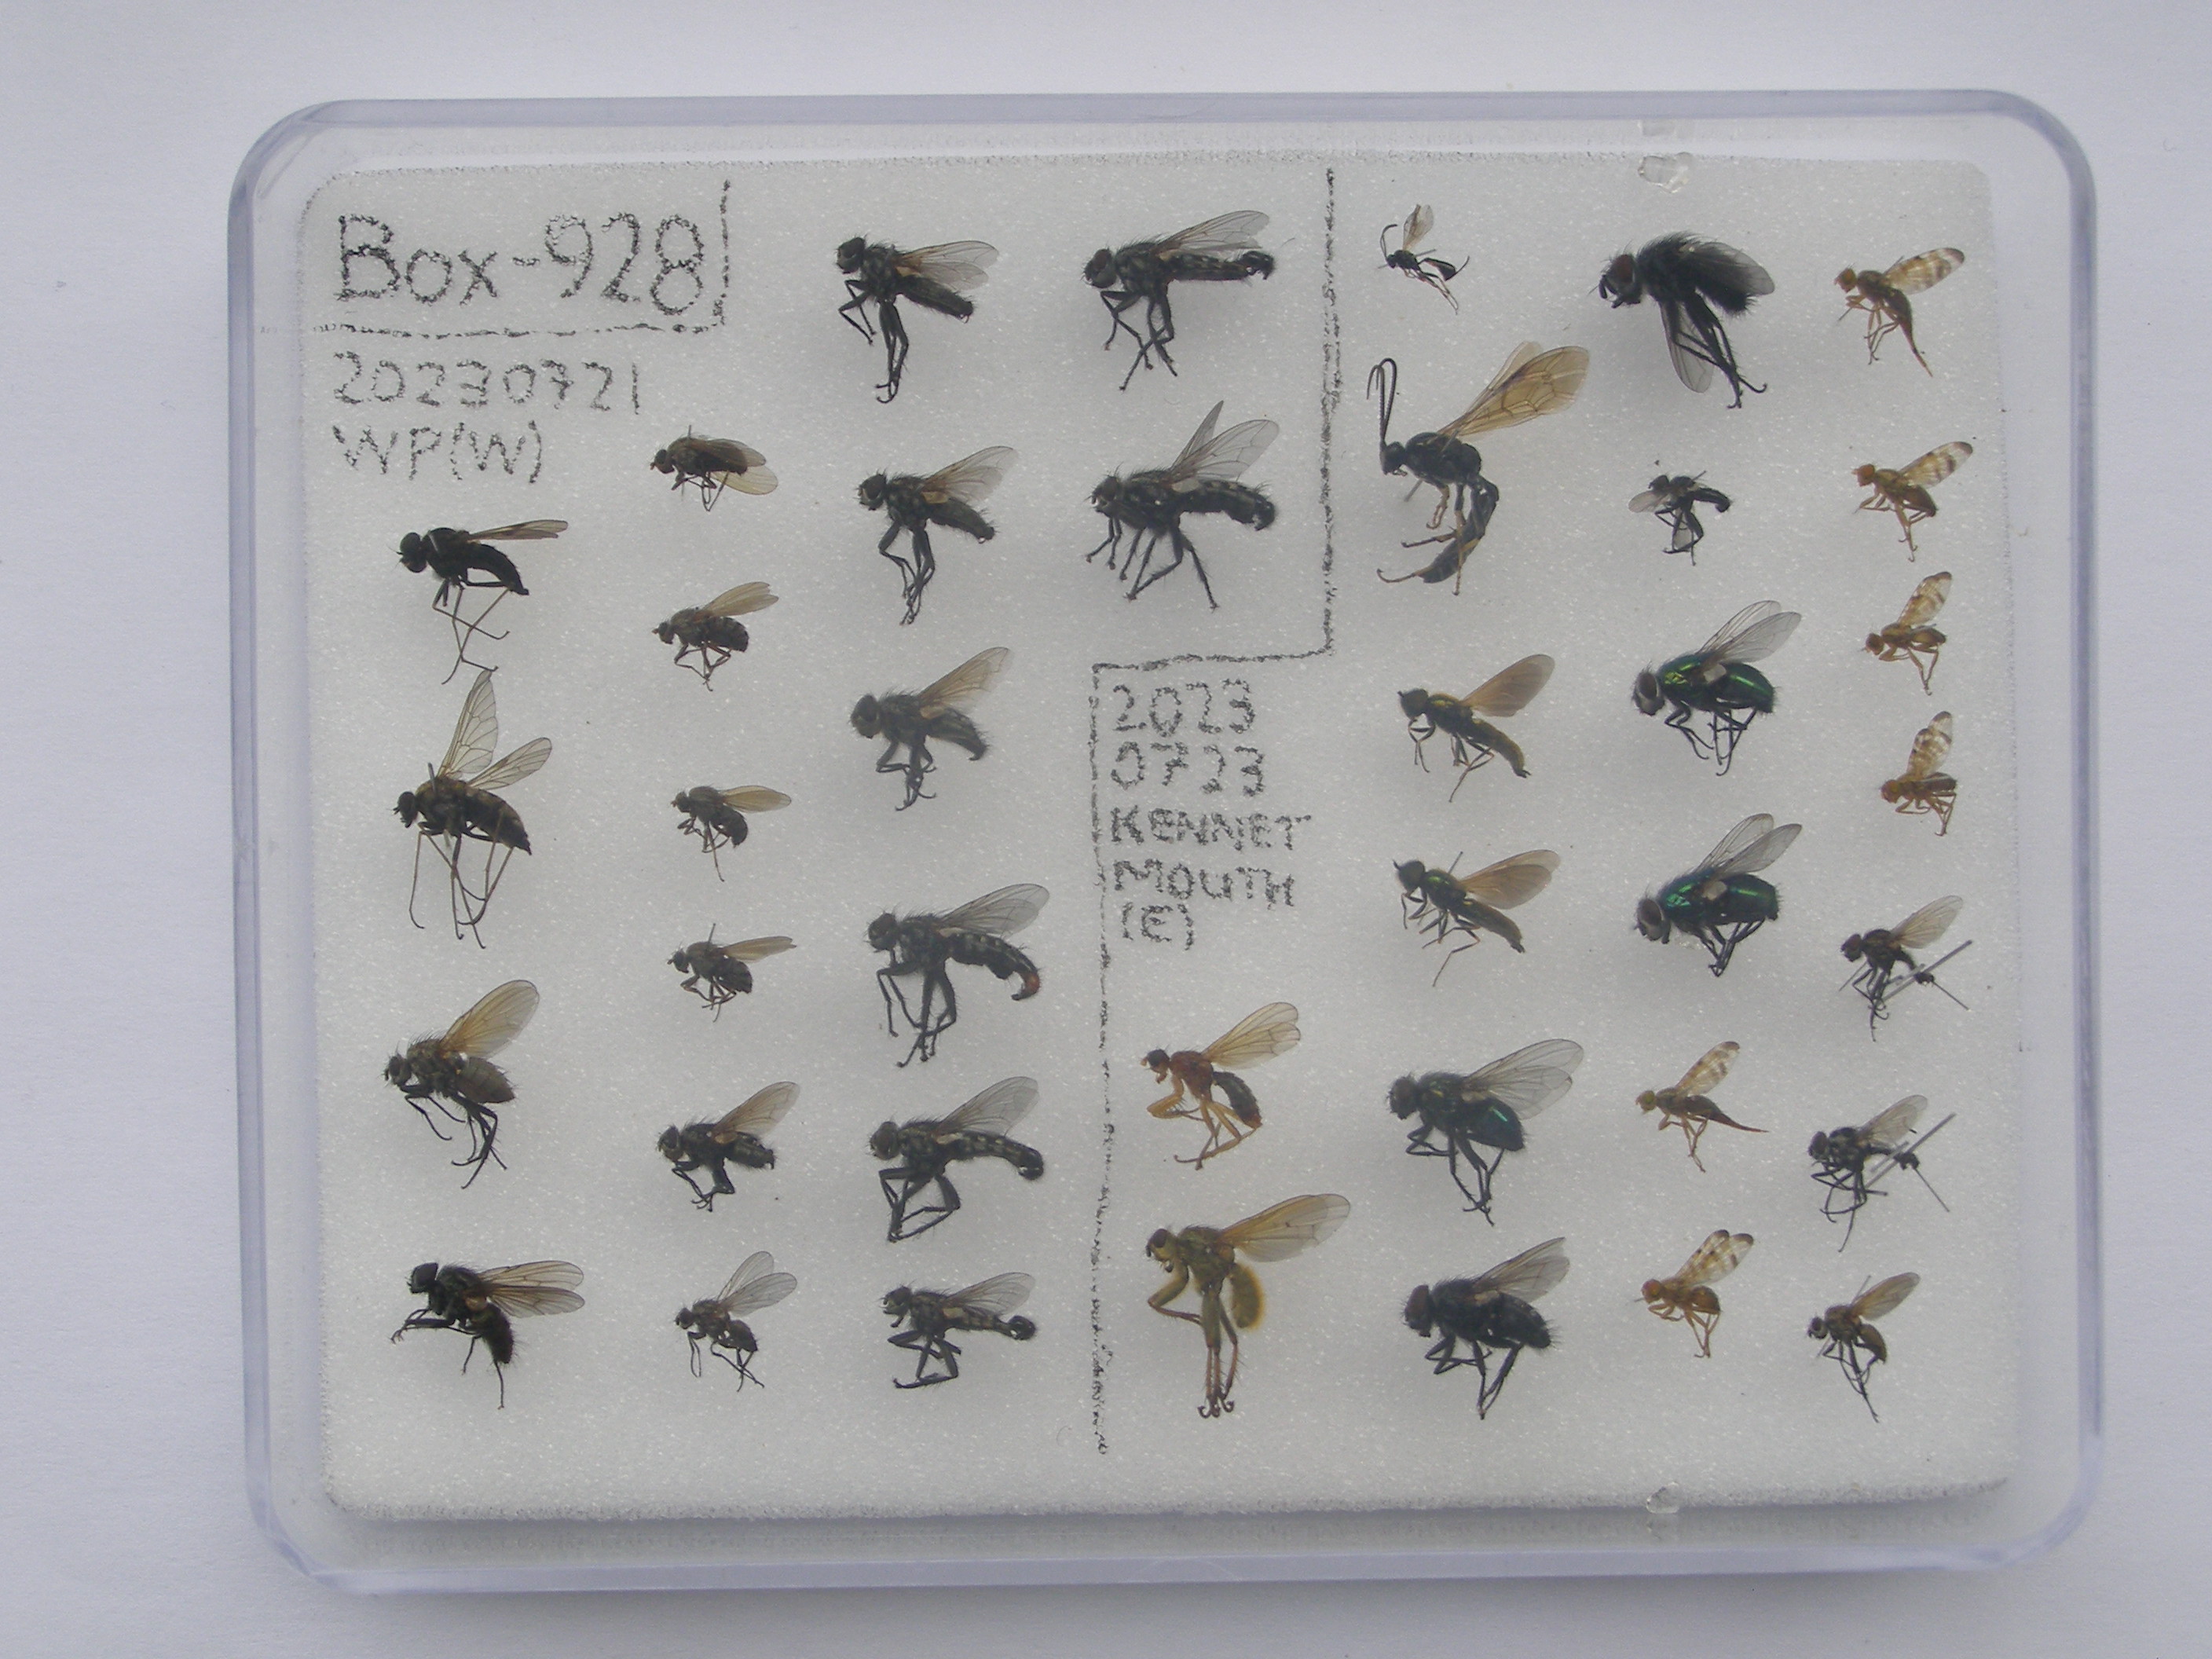 Box-928
20230721
WP(W)
2023
0723
KENNET
MOUTH